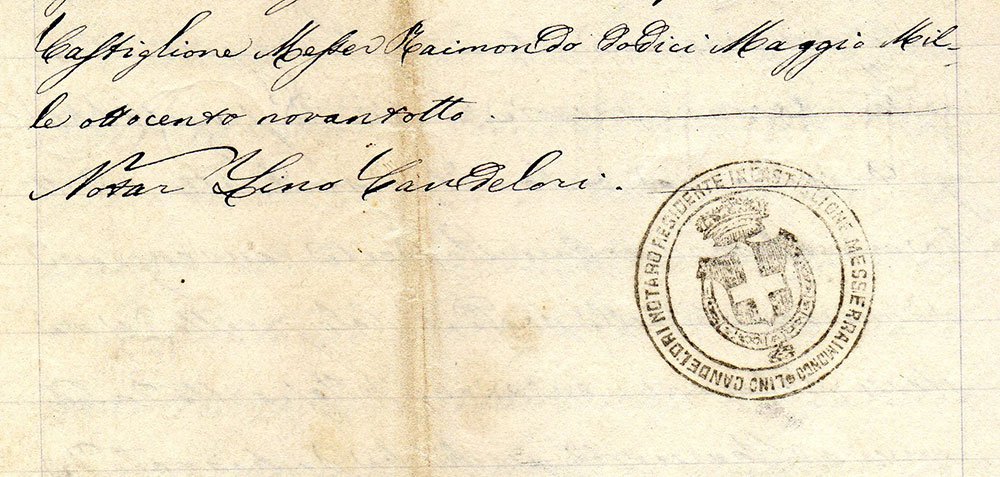 Castiglione Messer Raimondo dodici Maggio Mil-
le ottocento novantotto.
Notar Lino Candelori.
LINO CANDELORI NOTARO RESIDENTE IN CASTIGLIONE MESSER RAIMONDO